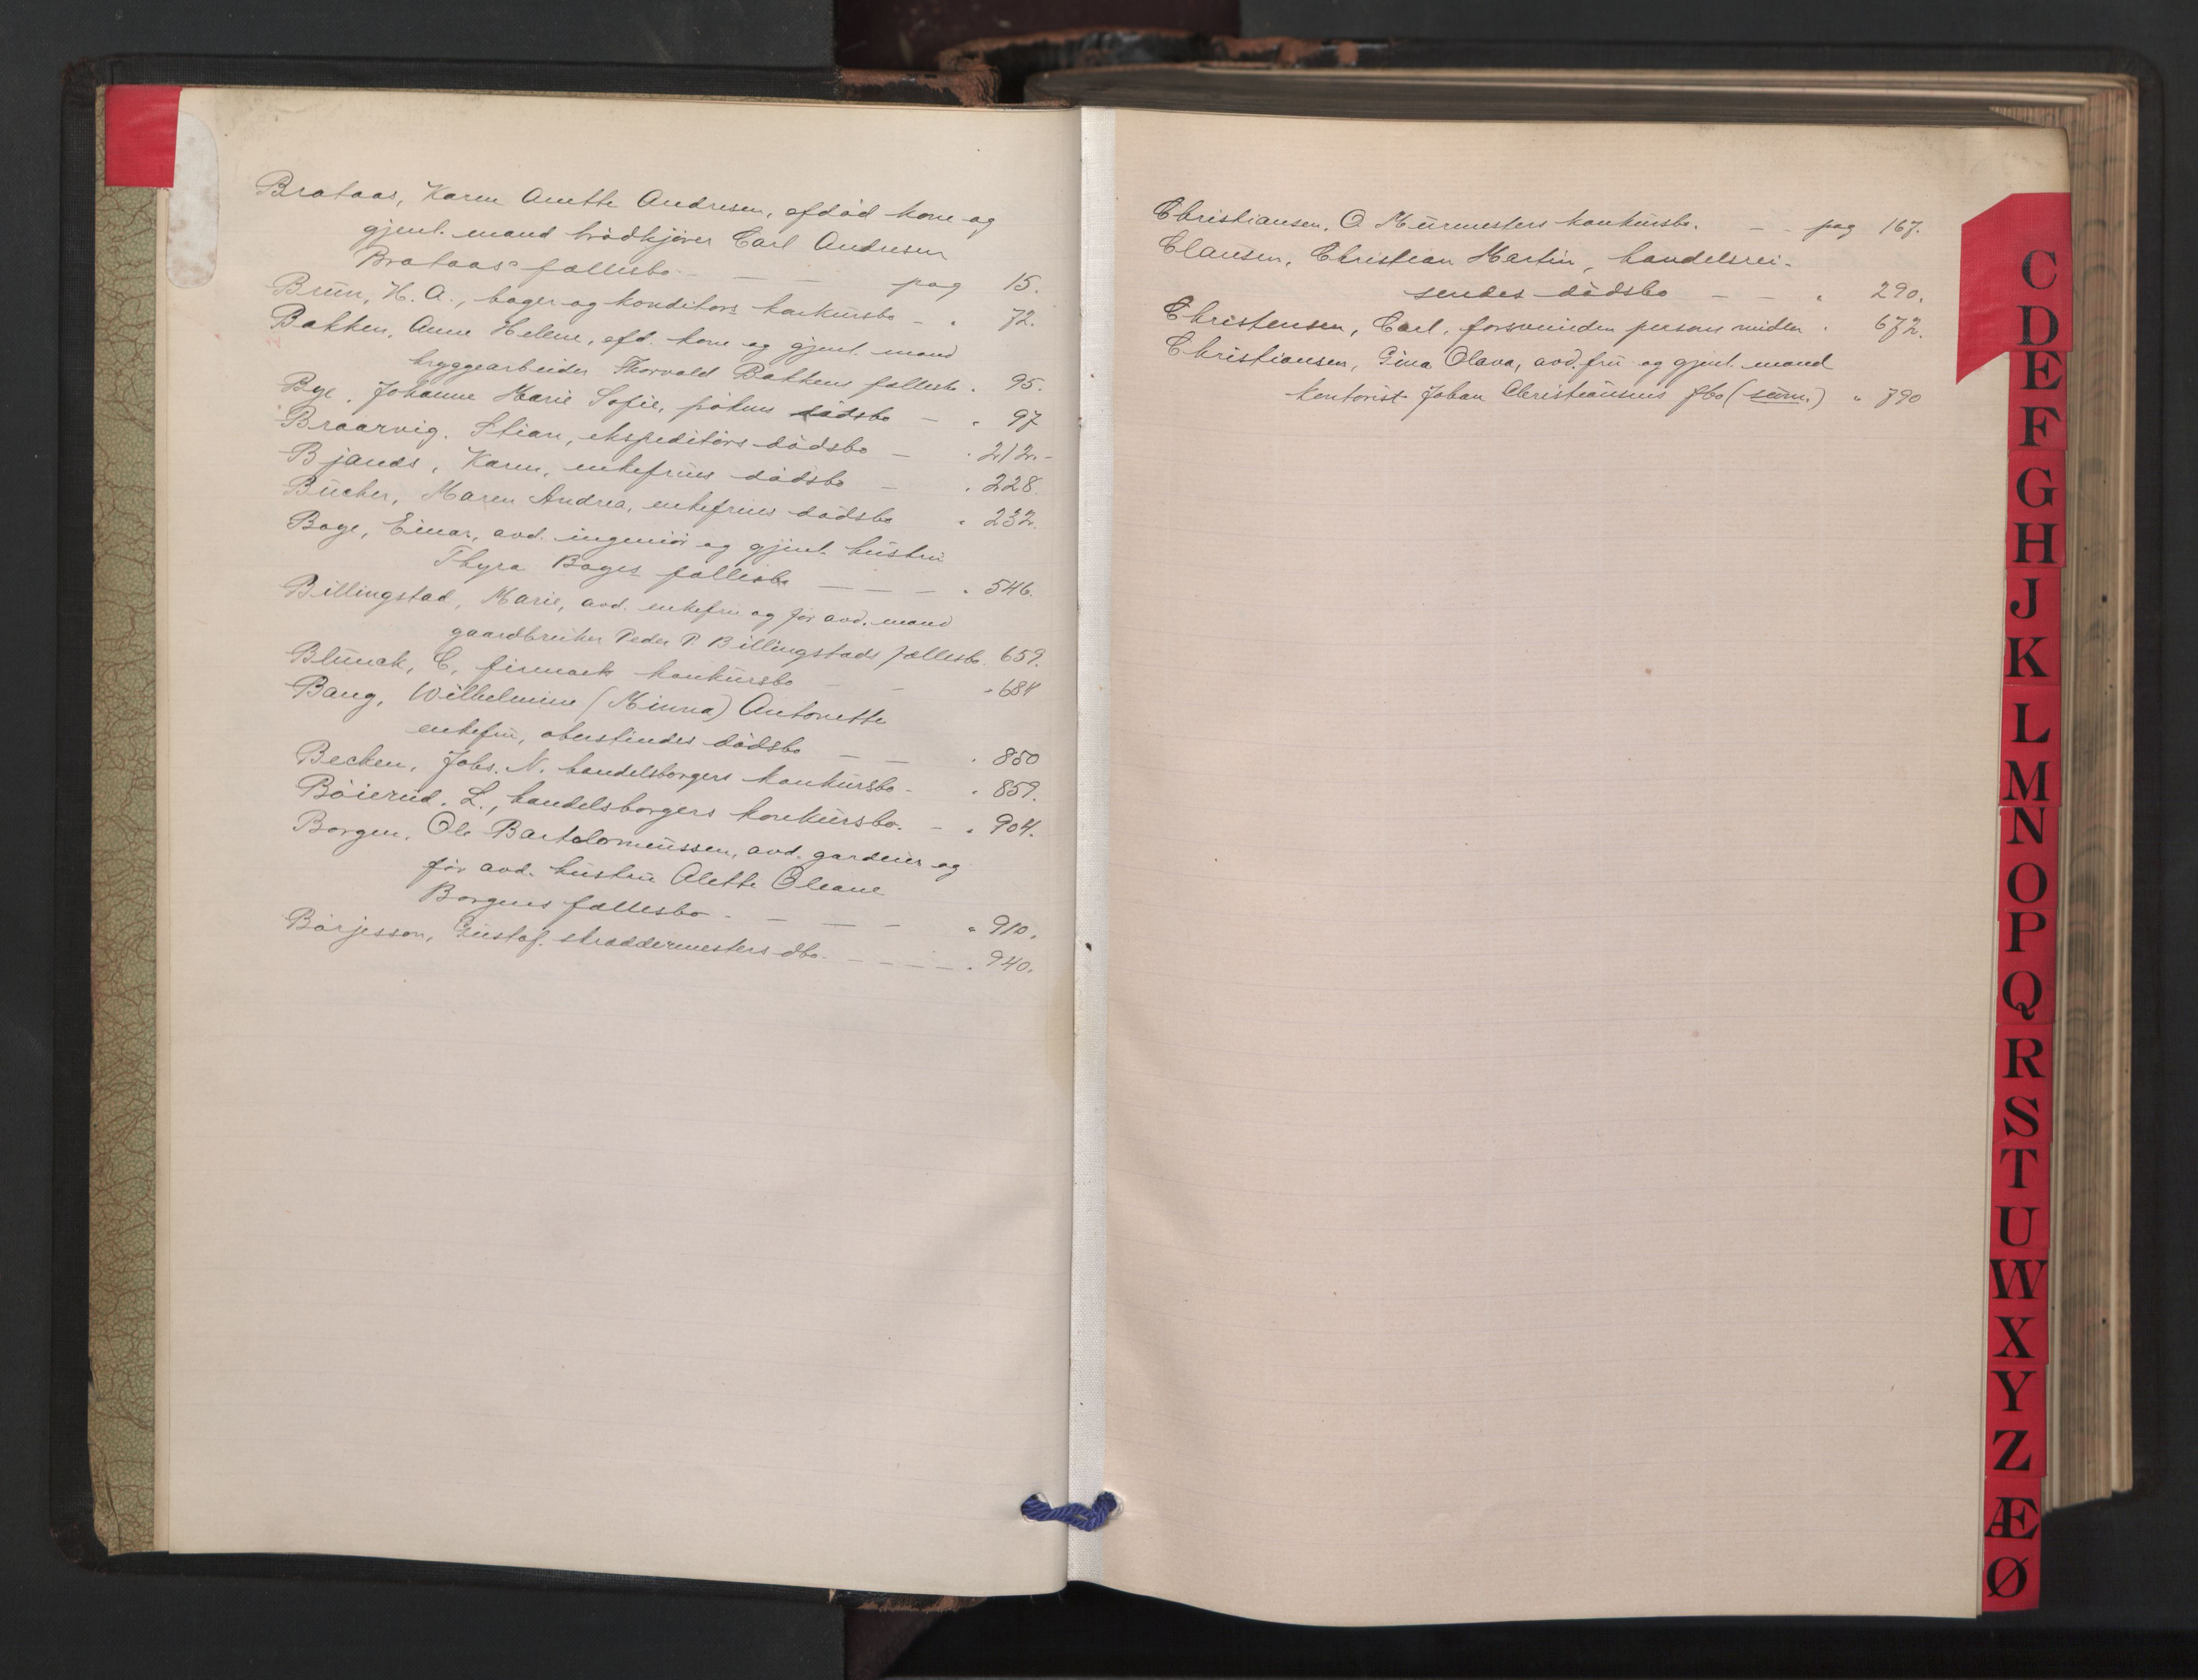 Brataas, Karen Anette Andresen, efdöd kone og
gjenl. mand brödkjörer Carl Andresen
Brataas' fællesbo — — pag 15.
Brun, H. A., bager og konditors konkursbo - " 72.
Bakken, Anne Helene, efd. kone og gjenl. mand
bryggearbeider Thorvald Bakkens fællesbo. 95.
Bye, Johanne Marie Sofie, frökens dödsbo — " 97
Braarvig, Stian, ekspeditörs dödsbo — " 212.-
Bjands, Karen, enkefrues dödsbo — " 228.
Bücher, Maren Andrea, enkefrues dödsbo " 232.
Boye, Einar, avd. ingeniör og gjenl. hustru
Thyra Boyes fællesbo — — — " 546.
Billingstad, Marie, avd. enkefru og för avd. mand
gaardbruker Peder P. Billingstads fællesbo. 659.
Blunck, C, firmaets konkursbo - - " 684
Bang, Wilhelmine (Minna) Antonette
enkefru, oberstindes dödsbo — — " 850
Becken, Johs. N. handelsborgers konkursbo - " 859.
Böierud, L., handelsborgers konkursbo. - " 904.
Borgen, Ole Bartolomeussen, avd. gardeier og
för avd. hustru Alette Oleane
Borgens fællesbo - — — - " 910.
Börjesson, Gustaf, skræddermesters dbo. - - - - " 940.
Christiansen, O Murmesters konkursbo. — - pag 167.
Clausen, Christian Martin, handelsrei-
sendes dödsbo — — " 290.
Christensen, Carl, forsvunden persons midler " 672.
Christiansen, Gina Olava, avd. fru og gjenl. mand
kontorist Johan Christiansens fbo (sum.) " 790
C
D
E
F
G
H
J
K
L
M
N
O
P
Q
R
S
T
U
W
X
Y
Z
Æ
Ø